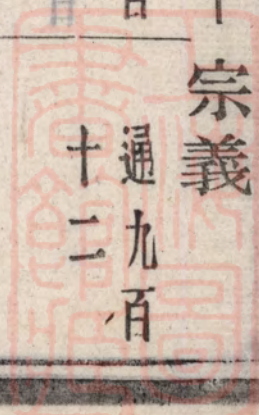 宗義
通九百
十二